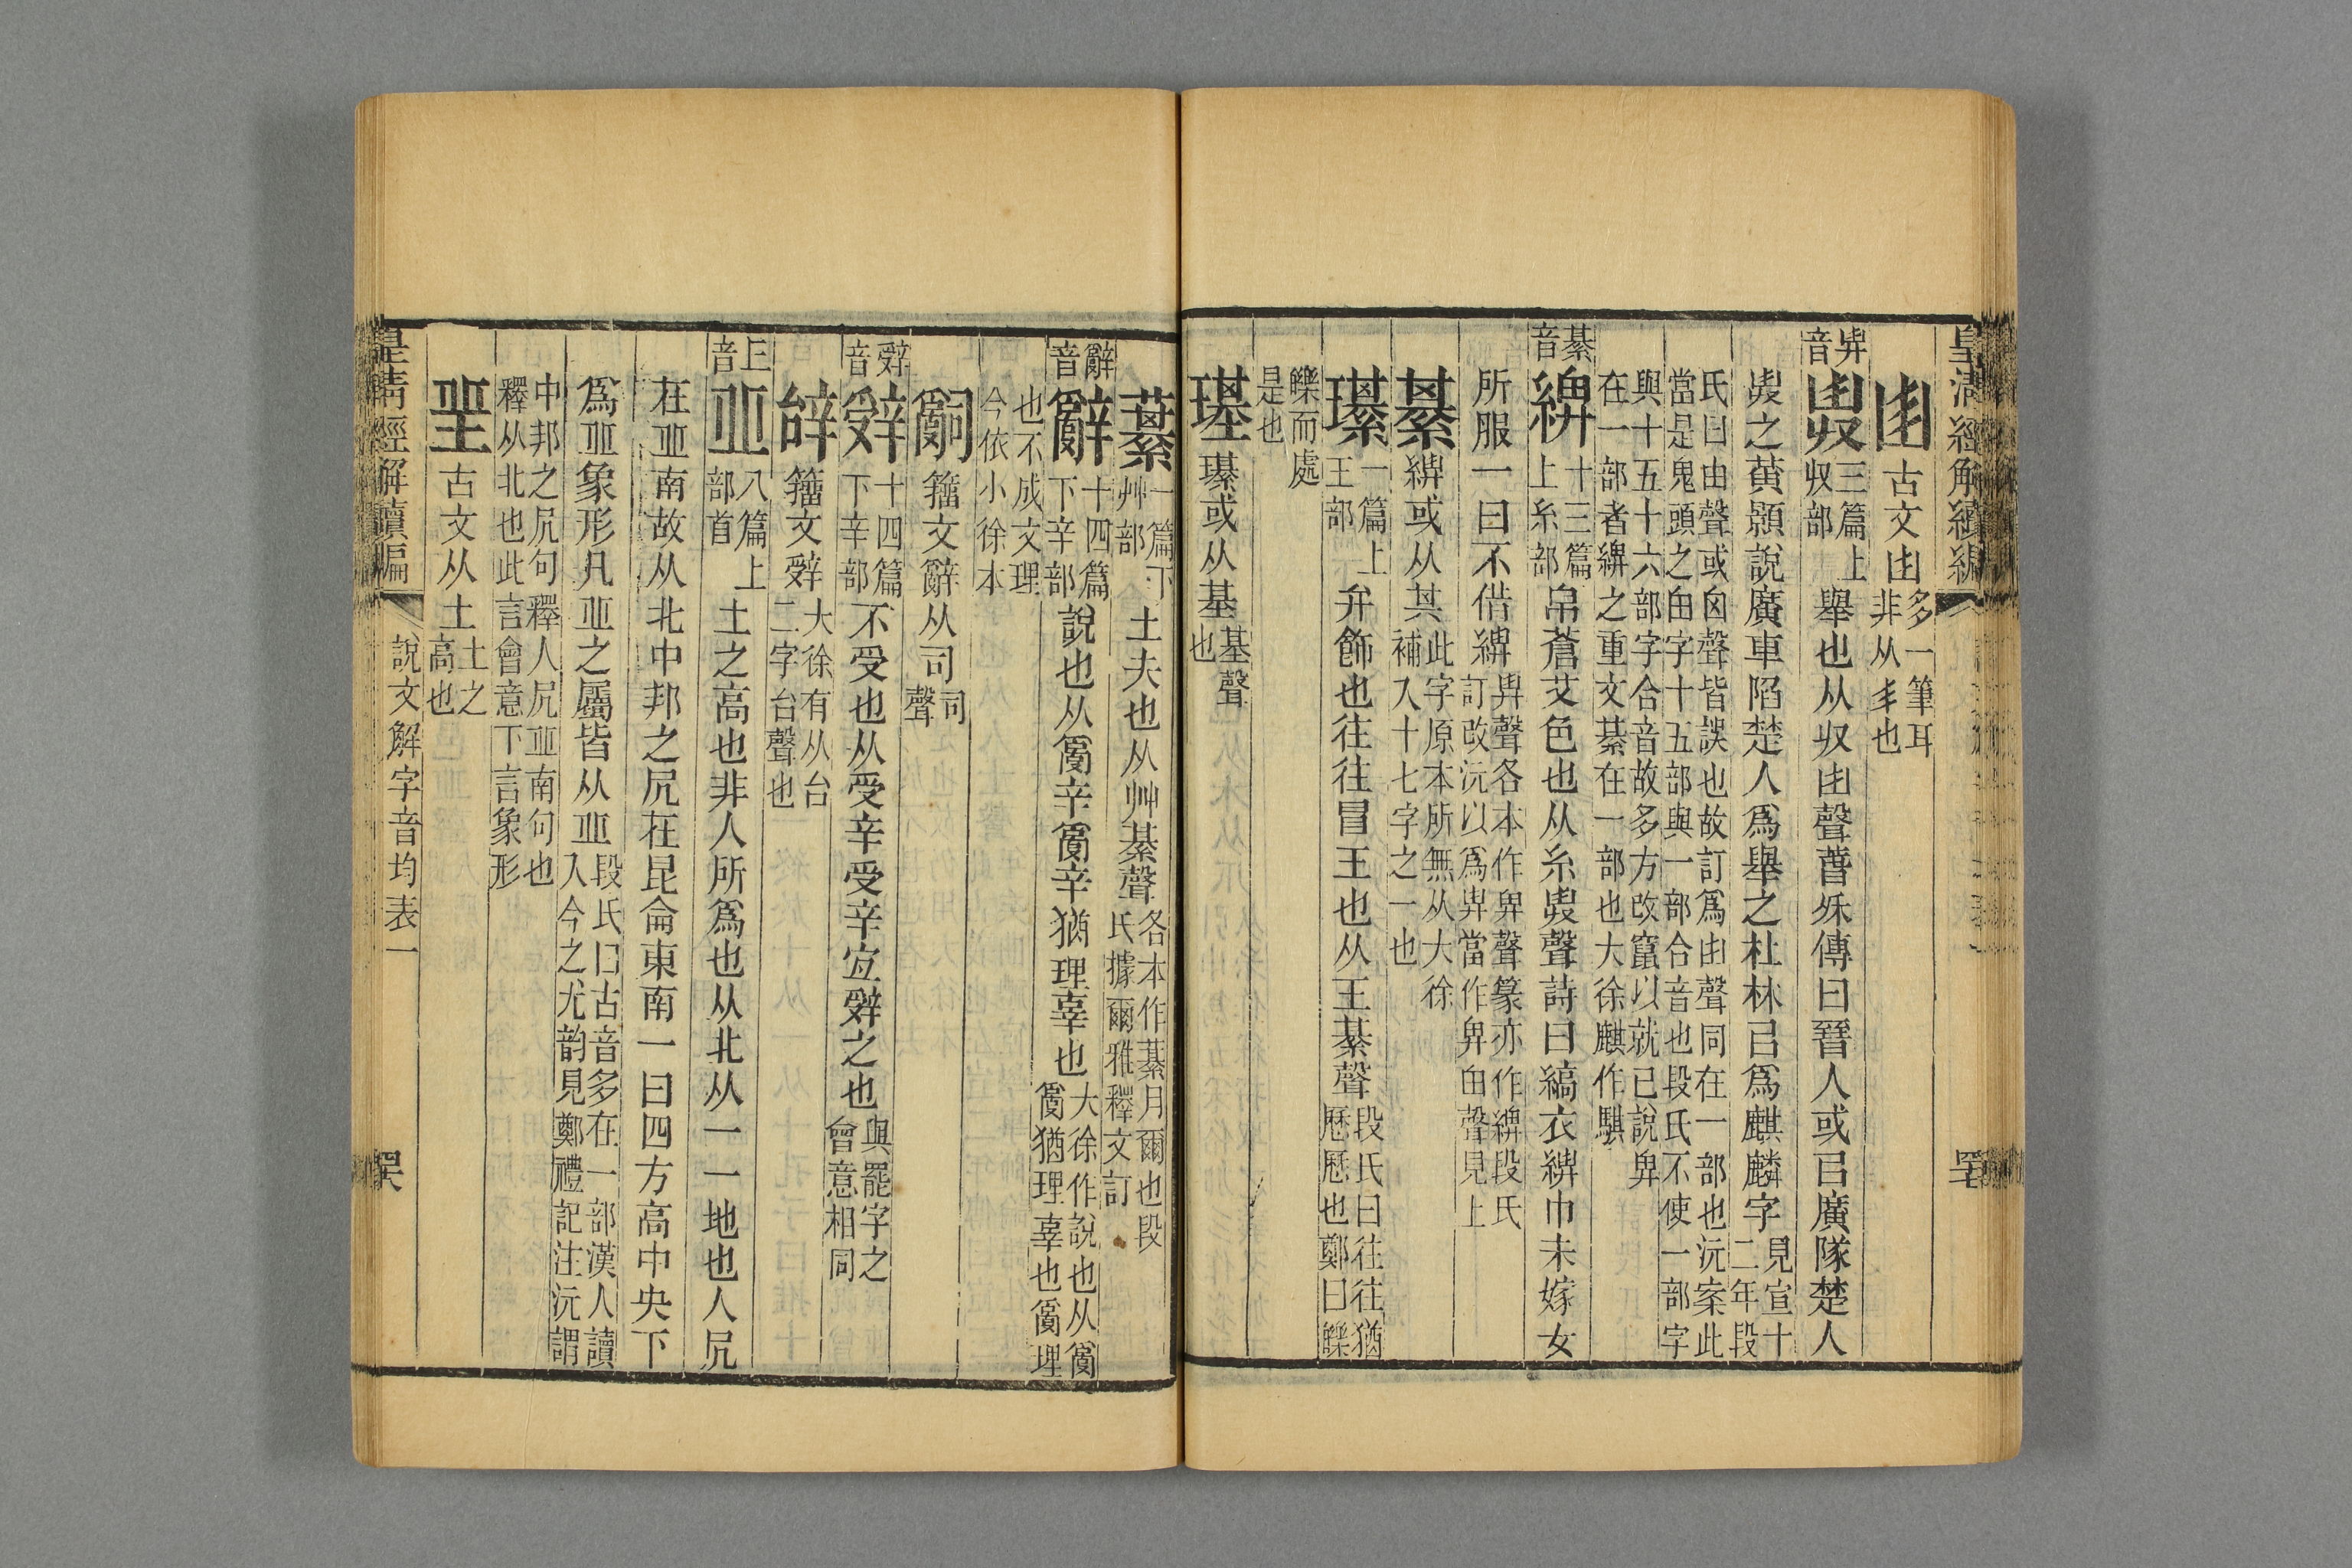 皇清經解續編
古文甾多一筆耳
非从𠂹也
舁音
三篇上
収部
舉也从収甾聲春秋傳曰晉人或㠯廣隊楚人
𢍁之黃顥說廣車陷楚人爲舉之杜林㠯爲麒麟字
見宣十
二年段
氏曰甾聲或囟聲皆誤也故訂爲甾聲同在一部也沅案此
當是鬼頭之甶字十五部與一部合音也段氏不使一部字
與十五十六部字合音故多方改竄以就已說畀
在一部者綥之重文綦在一部也大徐麒作騏
綦音
綥
十三篇
上糸部
帛蒼艾色也从糸𢍁聲詩曰縞衣綥巾未嫁女
所服一曰不借綥
𢍁聲各本作畀聲篆亦作綥段氏
訂改沅以爲𢍁當作畀甶聲見上
綦
綥或从其
此字原本所無从大徐
補入十七字之一也
璂
一篇上
王部
弁飾也往往冒王也从王綦聲
段氏曰往往猶
歷歷也鄭曰皪
皪而處
是也
璂
璂或从基
基聲
也
綦
一篇下
艸部
土夫也从艸綦聲
各本作綦月爾也段
氏據爾雅釋文訂
辭音
辭
十四篇
下辛部
說也从𤔔辛𤔔辛猶理辜也
大徐作說也从𤔔
𤔔猶理辜也𤔔理
也不成文理
今依小徐本
嗣
籒文辭从司
司
聲
辤音
辤
十四篇
下辛部
不受也从受辛受辛宜辤之也
與罷字之
會意相同
辝
籒文辤
大徐有从台
二字台聲也
丘音
丠
八篇上
部首
土之高也非人所爲也从北从一一地也人凥
在丠南故从北中邦之凥在昆侖東南一曰四方高中央下
爲丠象形凡丠之屬皆从丠
段氏曰古音多在一部漢人讀
入今之尤韵見鄭禮記注沅謂
中邦之凥句釋人凥丠南句也
釋从北也此言會意下言象形
㘳
古文从土
土之
高也
皇清經解續編
說文解字音均表一